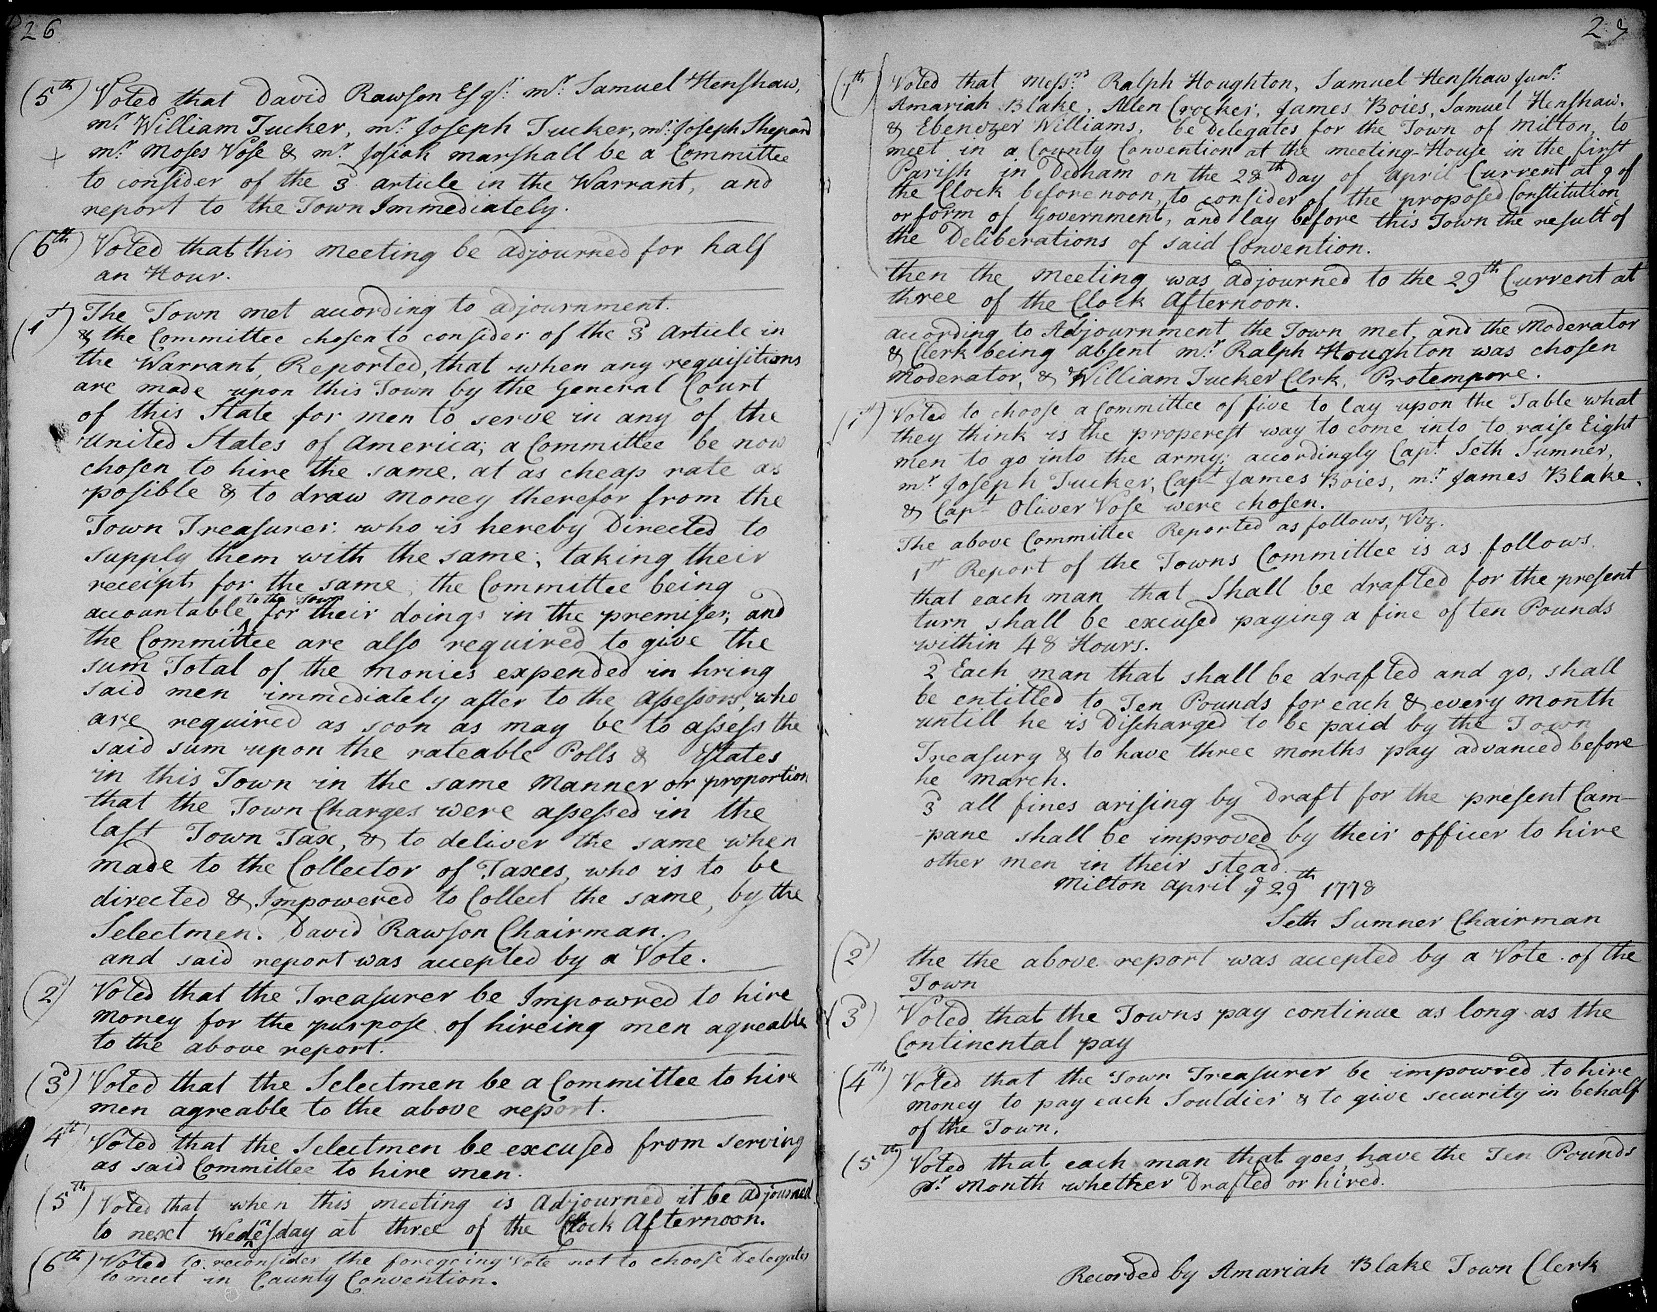 26
(5th) Voted that David Rawson Esqr. mr. Samuel Henshaw,
mr. William Tucker, mr. Joseph Tucker, mr. Joseph Shepard
mr. Moses Vose & mr. Josiah marshall be a Committee
to consider of the 3d article in the Warrant, and
report to the Town Immediately.
(6th) Voted that this meeting be adjourned for half
an Hour.
(1st) The Town met acording to adjournment.
& the Committee chosen to consider of the 3d Article in
the Warrant, Reported, that when any requisitions
are made upon this Town by the General Court
of this State for men to serve in any of the
United States of America; a Committee be now
chosen to hire the same, at as cheap rate as
posible & to draw money therefor from the
Town Treasurer: who is hereby Directed to
supply them with the same; taking their
receipts for the same, the Committee being
acountable to the Town for their doings in the premises; and
the Committee are also required to give the
sum Total of the monies expended in hiring
said men immediately after to the assessors, who
are required as soon as may be to assess the
said sum upon the rateable Polls & Estates
in this Town in the same Manner or proportion
that the Town Charges were assessed in the
last Town Tax, & to deliver the same when
made to the Collector of Taxes, who is to be
directed & Impowered to Collect the same, by the
Selectmen. David Rawson Chairman.
and said report was accepted by a Vote.
(2d) Voted that the Treasurer be Impowred to hire
money for the purpose of hireing men agreable
to the above report.
(3d) Voted that the Selectmen be a Committee to hire
men agreable to the above report.
(4th Voted that the Selectmen be excused from serving
as said Committee to hire men.
(5th) Voted that when this meeting is Adjourned it be adjourned
to next Wednesday at three of the Clock Afternoon.
(6th) Voted to reconsider the foregoing Vote not to choose Delegates
to meet in Caunty Convention.
(7th) Voted that messrs. Ralph Houghton, Samuel Henshaw junr.
Amariah Blake, Allen Crocker, James Boies, Samuel Henshaw.
& Ebenezer Williams, be Delegates for the Town of Milton, to
meet in a County Convention at the meeting-House in the first
Parish in Dedham on the 28th Day of april Current at 9 of
the Clock beforenoon, to consider of the proposed Constitution
or form of Government, and lay before this Town the result of
the Deliberations of said Convention.
then the meeting was adjourned to the 29th Current at
three of the Clock Afternoon.
acording to Adjournment the Town met, and the Moderator
& Clerk being absent mr. Ralph Houghton was chosen
Moderator, & William Tucker Clrk, Protempore.
(1st) Voted to choose a Committee of five to lay upon the Table what
they think is the properest way to come into to raise Eight
men to go into the army; acordingly Capt. Seth Sumner,
mr. Joseph Tucker, Capt. James Boies, mr. James Blake,
& Capt. Oliver Vose were chosen.
The above Committee Reported as follows, Viz.
1st Report of the Towns Committee is as follows
that each man that shall be drafted for the present
turn shall be excused paying a fine of ten Pounds
within 48 Hours.
2 Each man that shall be drafted and go, shall
be entitled to Ten Pounds for each & every month
untill he is Discharged to be paid by the Town
Treasury & to have three months pay advanced before
he march.
3d all fines arising by Draft for the present Cam-
-pane shall be improved by their officer to hire
other men in their stead.
Milton april ye 29th 1778
Seth Sumner Chairman
(2d) the the above report was accepted by a Vote of the
Town
(3d) Voted that the Towns pay continue as long as the
Continental pay
(4th) Voted that the Town Treasurer be impowred to hire
money to pay each Souldier & to give security in behalf
of the Town.
(5th) Voted that each man that goes have the Ten Pounds
pr. Month whether Drafted or hired.
Recorded by Amariah Blake Town Clerk